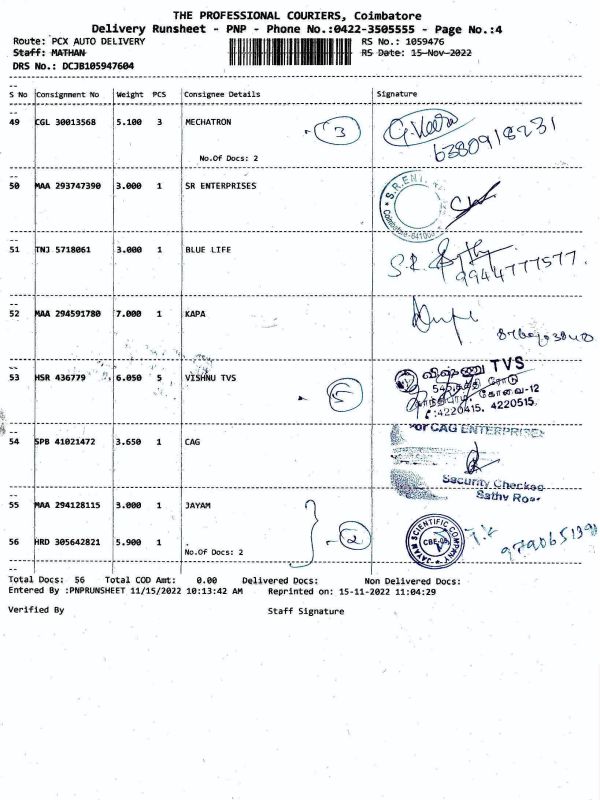 THE PROFESSIONAL COURIERS, Coimbatore
Delivery Runsheet - PNP - Phone No.:0422-3505555 - Page No.:4
Route: PCX AUTO DELIVERY RS No.: 1059476
Staff: MATHAN RS Date: 15-Nov-2022
DRS No.: DCJB105947604
S No Consignment No Weight PCS Consignee Details Signature
49 CGL 30013568 5.100 3 MECHATRON 3 G.Veera
6380918231
No.Of Docs: 2
50 MAA 293747390 3.000 1 SR ENTERPRISES
51 TNJ 5718061 3.000 1 BLUE LIFE S.R.
9944777577.
52 MAA 294591780 7.000 1 KAPA
53 HSR 436779 6.050 5 VISHNU TVS 5 விஷ்ணு TVS
ரோடு
கோவை-12
:4220415, 4220515
54 SPB 41021472 3.650 1 CAG For CAG ENTERPRISES
Security Checked
55 MAA 294128115 3.000 1 JAYAM
JAYAM SCIENTIFIC COMPANY
56 HRD 305642821 5.900 1 2
No.Of Docs: 2
Total Docs: 56 Total COD Amt: 0.00 Delivered Docs: Non Delivered Docs:
Entered By :PNPRUNSHEET 11/15/2022 10:13:42 AM Reprinted on: 15-11-2022 11:04:29
Verified By Staff Signature